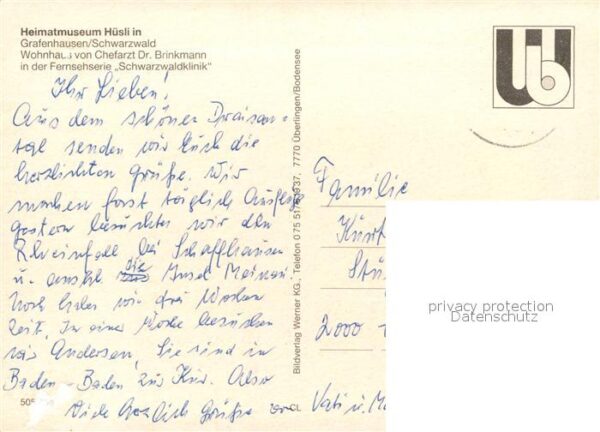 Heimatmuseum Hüsli in
Grafenhausen/Schwarzwald
Wohnhaus von Chefarzt Dr. Brinkmann
in der Fernsehserie „Schwarzwaldklinik"
Ihr Lieben!
Aus dem schönen Draisam-
tal senden wir Euch die
herzlichsten Grüße. Wir
machen fast täglich Ausflüge
gestern besuchten wir den
Rheinfall bei Schaffhausen
u. die Insel Mainau.
Noch haben wir drei Wochen
Zeit. In einer Woche besuchen
wir Andersen, Sie sind in
Baden-Baden zur Kur. Also
Viele herzliche Grüße von Vati u.
505
Bildverlag Werner KG., Telefon 0 75 51/ 7770 Überlingen/Bodensee
Familie
Kurt
2000
privacy protection
Datenschutz